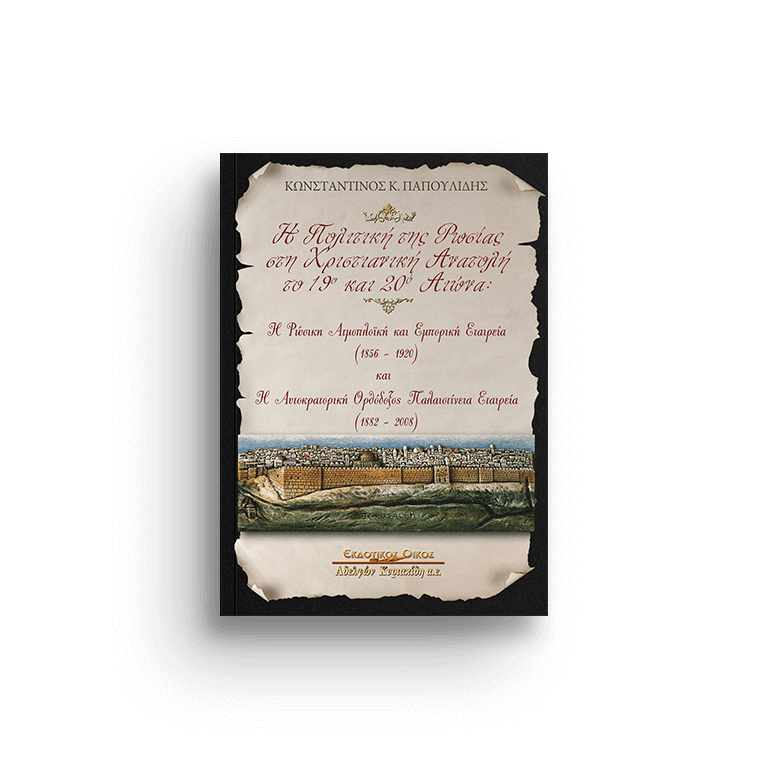 ΚΩΝΣΤΑΝΤΙΝΟΣ Κ. ΠΑΠΟΥΛΙΔΗΣ
Η Πολιτική της Ρωσίας
στη Χριστιανική Ανατολή
το 19ο και 20ό Αιώνα:
Η Ρώσικη Ατμοπλοϊκή και Εμπορική Εταιρεία
(1856 - 1920)
και
Η Αυτοκρατορική Ορθόδοξος Παλαιστίνεια Εταιρεία
(1882 - 2008)
JERUSALEM
Εκδοτικός Οίκος
Αδελφών Κυριακίδη α.ε.